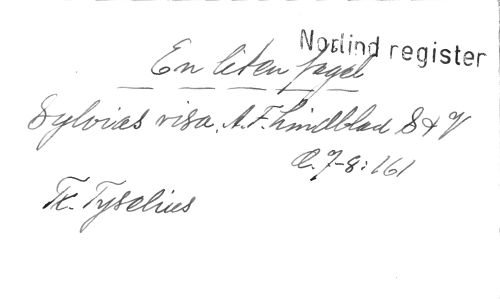 Norlind register
En liten fogel
Sylvias visa, A. F. Lindblad S & V
C. 7-8: 161
Tx. Tyselius